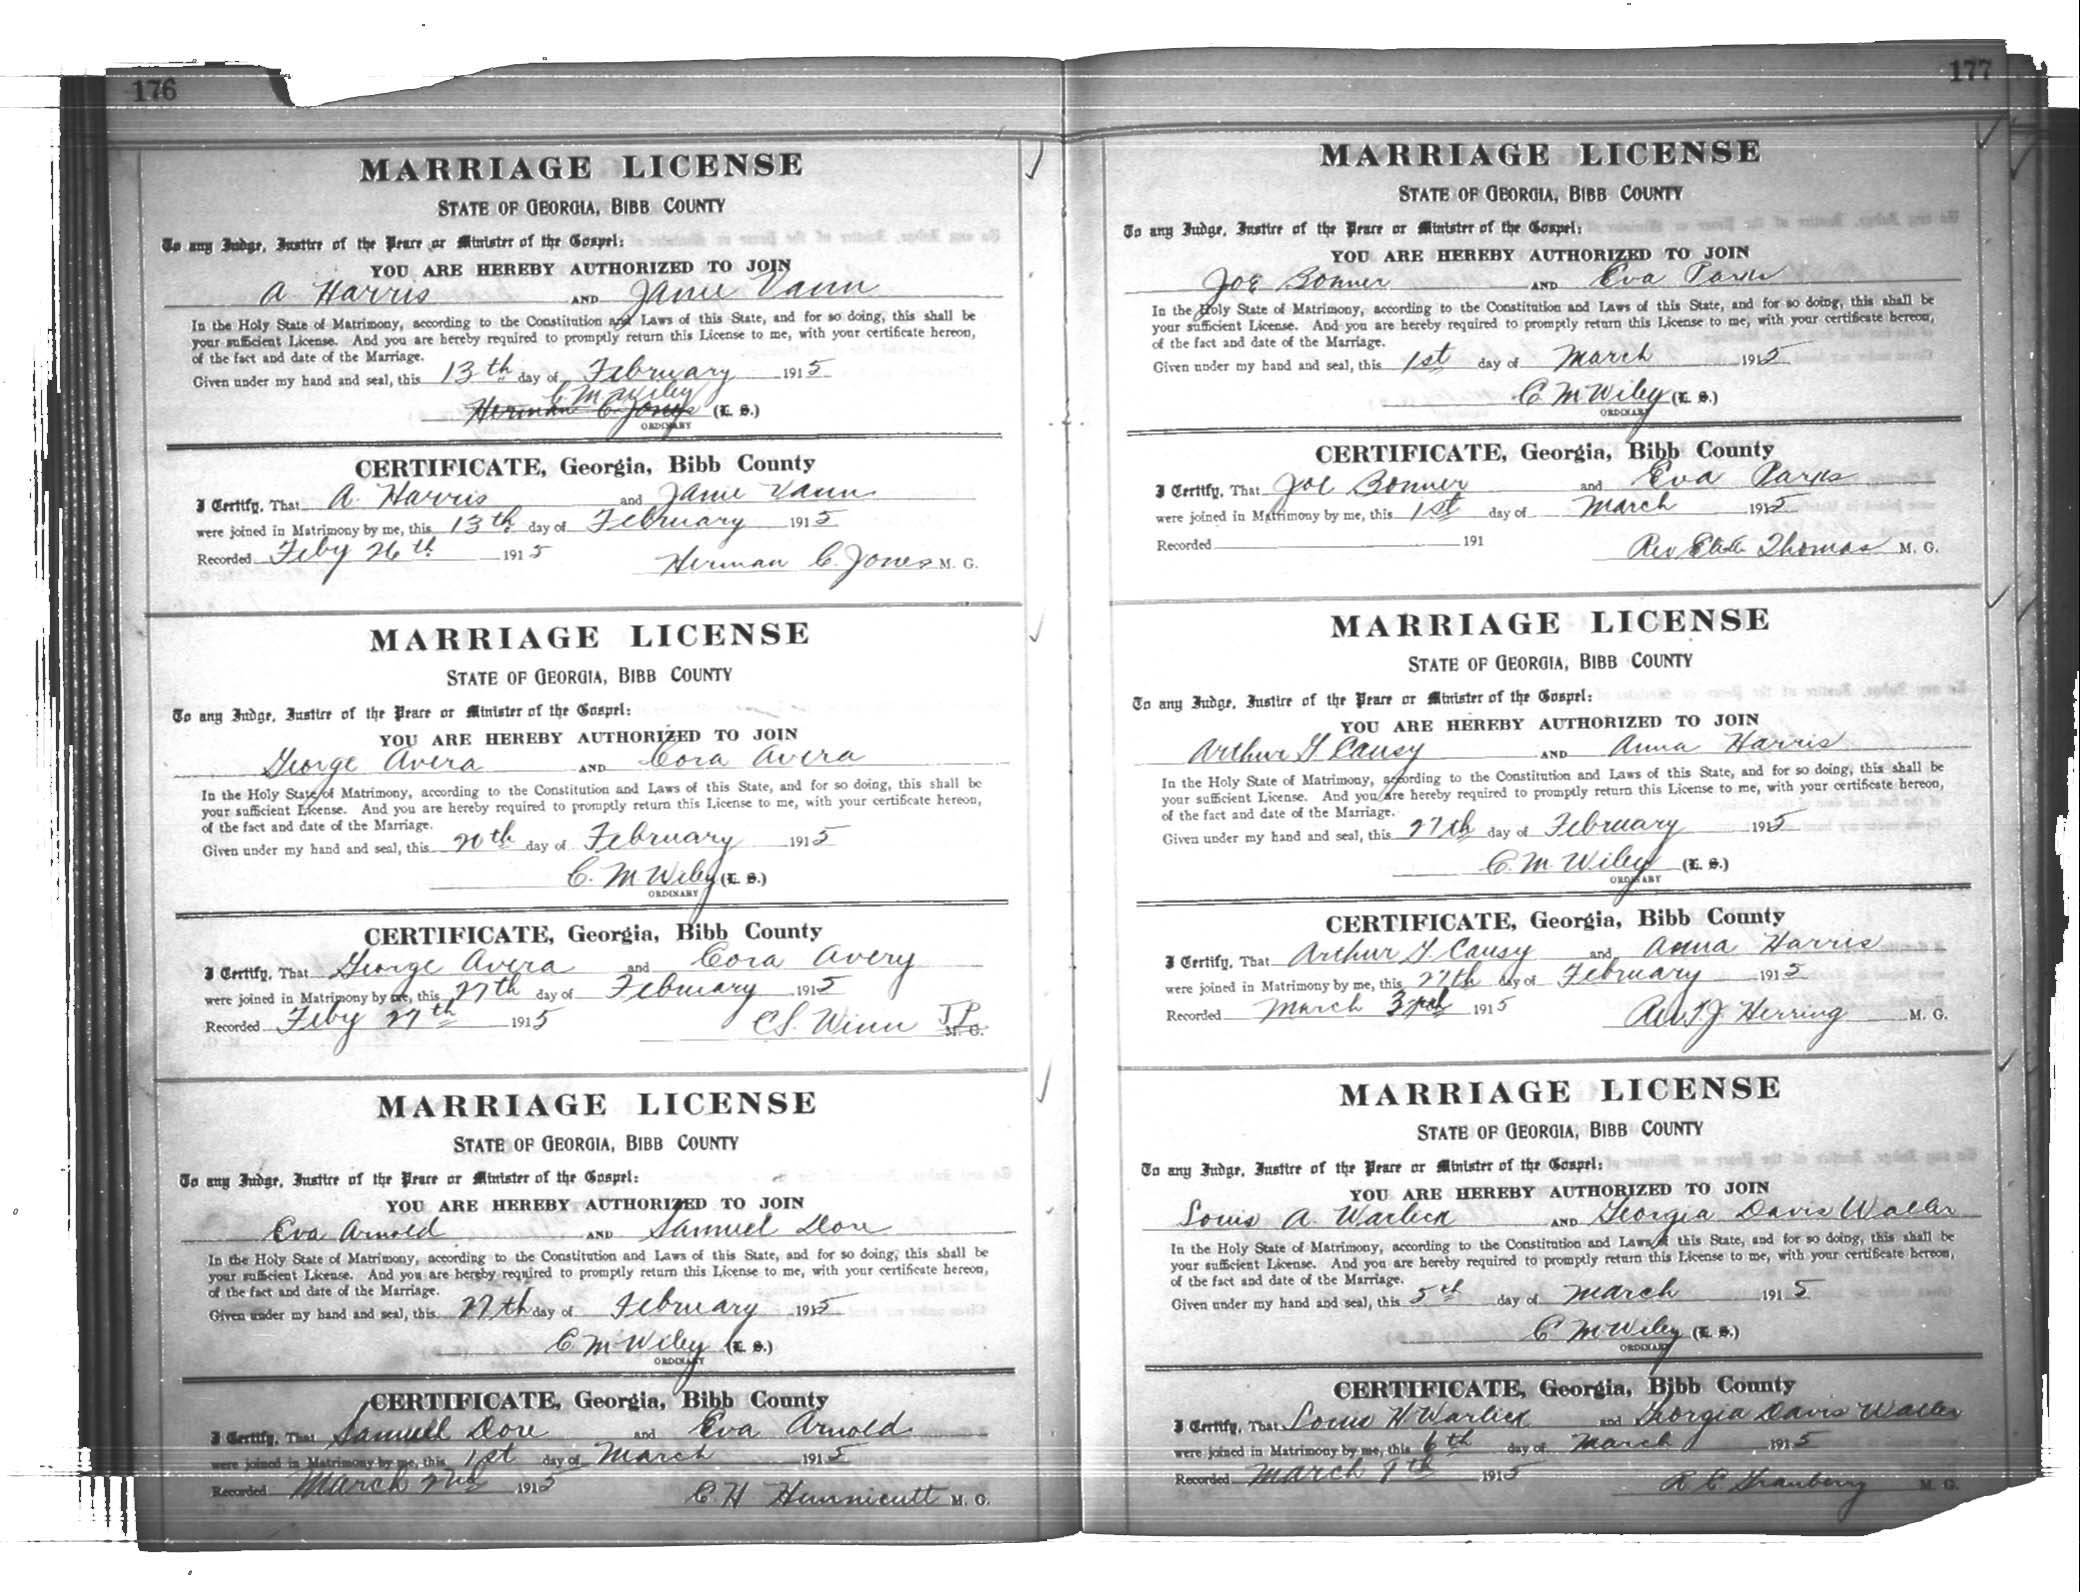 176
MARRIAGE LICENSE
STATE OF GEORGIA, BIBB COUNTY
To any Judge, Justice of the Peace or Minister of the Gospel:
YOU ARE HEREBY AUTHORIZED TO JOIN
A Harris AND Janie Vann
In the Holy State of Matrimony, according to the Constitution and Laws of this State, and for so doing, this shall be
your sufficient License. And you are hereby required to promptly return this License to me, with your certificate hereon,
of the fact and date of the Marriage.
Given under my hand and seal, this 13th day of February 1915
C M Wiley
Herman C. Jones (L. S.)
ORDINARY
CERTIFICATE, Georgia, Bibb County
I Certify, That A. Harris and Janie Vann
were joined in Matrimony by me, this 13th day of February 1915
Recorded Feby 26th 1915 Herman C. Jones M. G.
MARRIAGE LICENSE
STATE OF GEORGIA, BIBB COUNTY
To any Judge, Justice of the Peace or Minister of the Gospel:
YOU ARE HEREBY AUTHORIZED TO JOIN
George Avera AND Cora Avera
In the Holy State of Matrimony, according to the Constitution and Laws of this State, and for so doing, this shall be
your sufficient License. And you are hereby required to promptly return this License to me, with your certificate hereon,
of the fact and date of the Marriage.
Given under my hand and seal, this 20th day of February 1915
C. M Wiley (L. S.)
ORDINARY
CERTIFICATE, Georgia, Bibb County
I Certify, That George Avera and Cora Avery
were joined in Matrimony by me, this 27th day of February 1915
Recorded Feby 27th 1915 C S. Winn J P M. G.
MARRIAGE LICENSE
STATE OF GEORGIA, BIBB COUNTY
To any Judge, Justice of the Peace or Minister of the Gospel:
YOU ARE HEREBY AUTHORIZED TO JOIN
Eva Arnold AND Samuel Dore
In the Holy State of Matrimony, according to the Constitution and Laws of this State, and for so doing, this shall be
your sufficient License. And you are hereby required to promptly return this License to me, with your certificate hereon,
of the fact and date of the Marriage.
Given under my hand and seal, this 27th day of February 1915
C M Wiley (L. S.)
ORDINARY
CERTIFICATE, Georgia, Bibb County
I Certify, That Samuel Dore and Eva Arnold
were joined in Matrimony by me, this 1st day of March 1915
Recorded March 2nd 1915 C. H Hunnicutt M. G.
177
MARRIAGE LICENSE
STATE OF GEORGIA, BIBB COUNTY
To any Judge, Justice of the Peace or Minister of the Gospel:
YOU ARE HEREBY AUTHORIZED TO JOIN
Joe Bonner AND Eva Parks
In the Holy State of Matrimony, according to the Constitution and Laws of this State, and for so doing, this shall be
your sufficient License. And you are hereby required to promptly return this License to me, with your certificate hereon,
of the fact and date of the Marriage.
Given under my hand and seal, this 1st day of March 1915
C M Wiley (L. S.)
ORDINARY
CERTIFICATE, Georgia, Bibb County
I Certify, That Joe Bonner and Eva Parks
were joined in Matrimony by me, this 1st day of March 1915
Recorded 191 Rev Thomas M. G.
MARRIAGE LICENSE
STATE OF GEORGIA, BIBB COUNTY
To any Judge, Justice of the Peace or Minister of the Gospel:
YOU ARE HEREBY AUTHORIZED TO JOIN
Arthur G Causy AND Anna Harris
In the Holy State of Matrimony, according to the Constitution and Laws of this State, and for so doing, this shall be
your sufficient License. And you are hereby required to promptly return this License to me, with your certificate hereon,
of the fact and date of the Marriage.
Given under my hand and seal, this 27th day of February 1915
C. M. Wiley (L. S.)
ORDINARY
CERTIFICATE, Georgia, Bibb County
I Certify, That Arthur G. Causy and Anna Harris
were joined in Matrimony by me, this 27th day of February 1915
Recorded March 3rd 1915 Rev T. J. Herring M. G.
MARRIAGE LICENSE
STATE OF GEORGIA, BIBB COUNTY
To any Judge, Justice of the Peace or Minister of the Gospel:
YOU ARE HEREBY AUTHORIZED TO JOIN
Louis A. Warlick AND Georgia Davis Waller
In the Holy State of Matrimony, according to the Constitution and Laws of this State, and for so doing, this shall be
your sufficient License. And you are hereby required to promptly return this License to me, with your certificate hereon,
of the fact and date of the Marriage.
Given under my hand and seal, this 5th day of March 1915
C M Wiley (L. S.)
ORDINARY
CERTIFICATE, Georgia, Bibb County
I Certify, That Louis H Warlick and Georgia Davis Waller
were joined in Matrimony by me, this 6th day of March 1915
Recorded March 9th 1915 R C Granberry M. G.